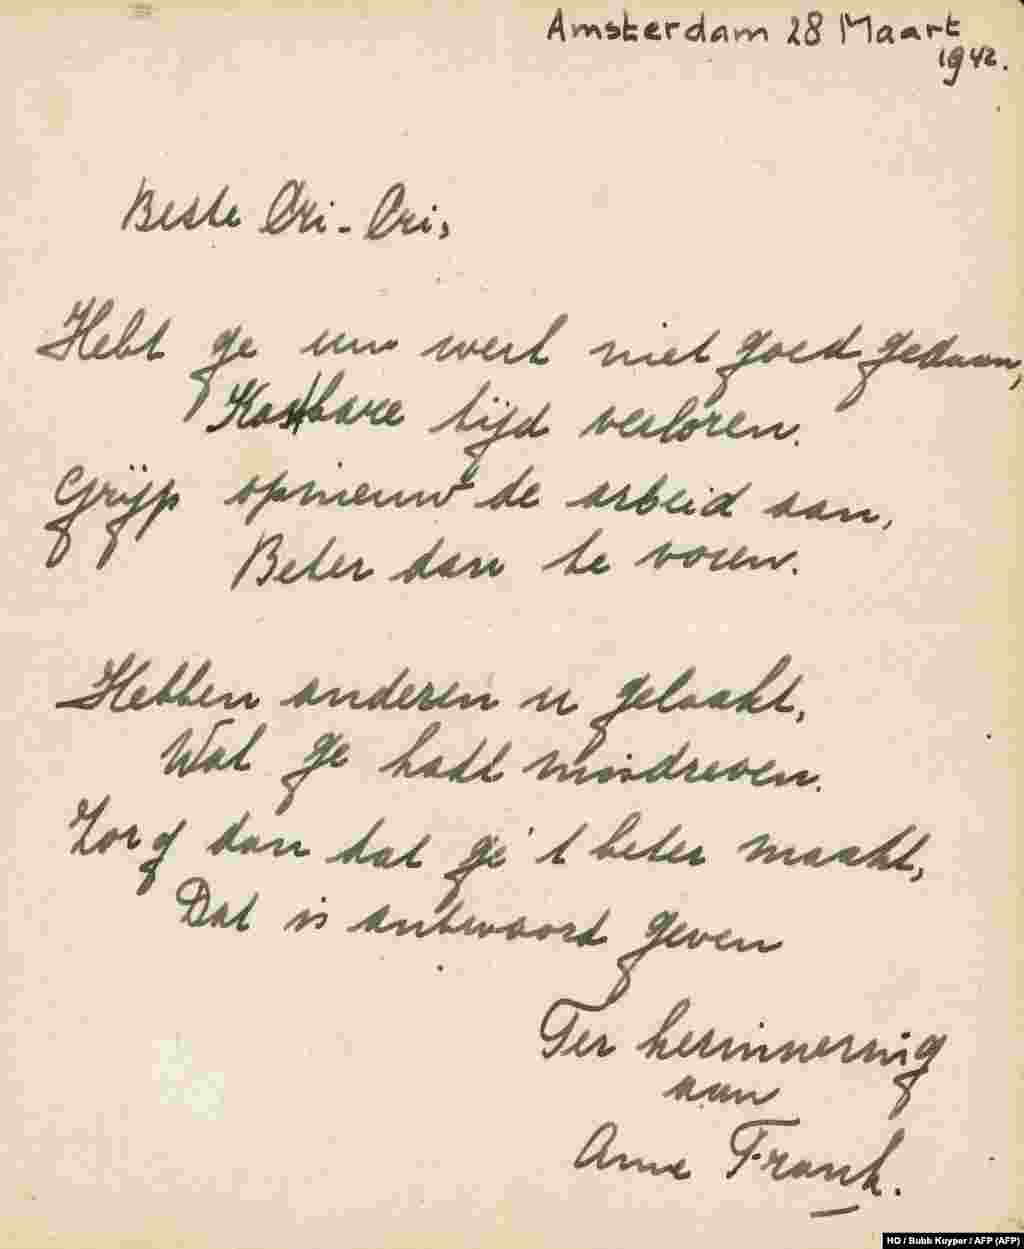 Amsterdam 28 Maart
1942.
Beste Cri-Cri,
Hebt ge uw werk niet goed gedaan,
Kostbare tijd verloren.
Grijp opnieuw de arbeid aan,
Beter dan te voren.
Hebben anderen u gelaakt,
Wat ge hadt misdreven.
Zorg dan dat ge 't beter maakt,
Dat is antwoord geven
Ter herinnering
aan
Anne Frank.
HO / Bubb Kuyper / AFP (AFP)